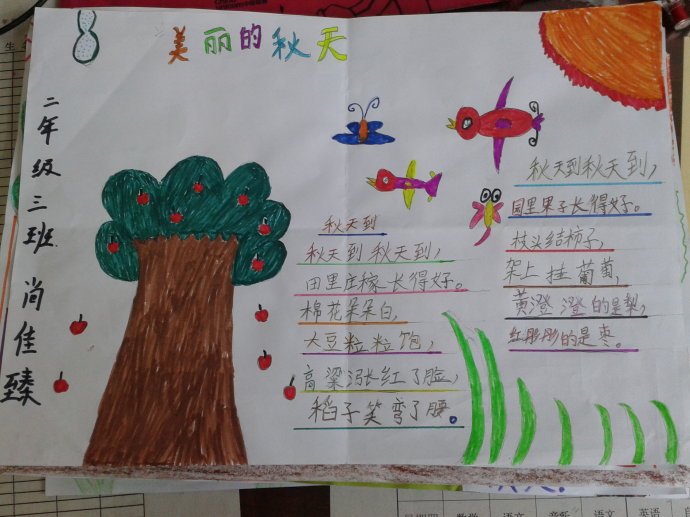 美丽的秋天
二年级三班 尚佳臻
秋天到
秋天到秋天到,
田里庄稼长得好。
棉花朵朵白,
大豆粒粒饱,
高粱涨红了脸,
稻子笑弯了腰。
秋天到秋天到,
园里果子长得好。
枝头结柿子,
架上挂葡萄,
黄澄澄的是梨,
红彤彤的是枣。
数学
语文
音乐
语文
英语